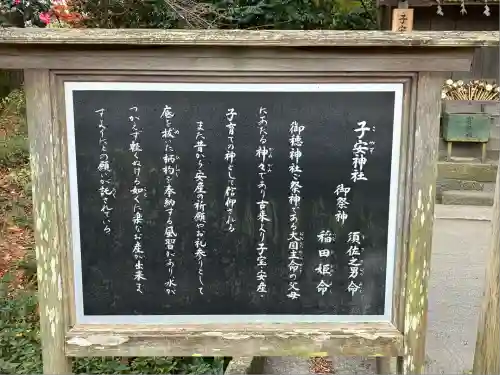 子安神社
御祭神 須佐之男命
稲田姫命
御穂神社ご祭神である大国主命の父母
にあたる神々であり古来より子宝・安産・
子育ての神として信仰される
また昔から安産の祈願やお礼参りとして
底を抜いた柄杓を奉納する風習があり水が
つかえず軽くぬける如くに楽なお産が出来ま
すようにとの願いに託されている
子安